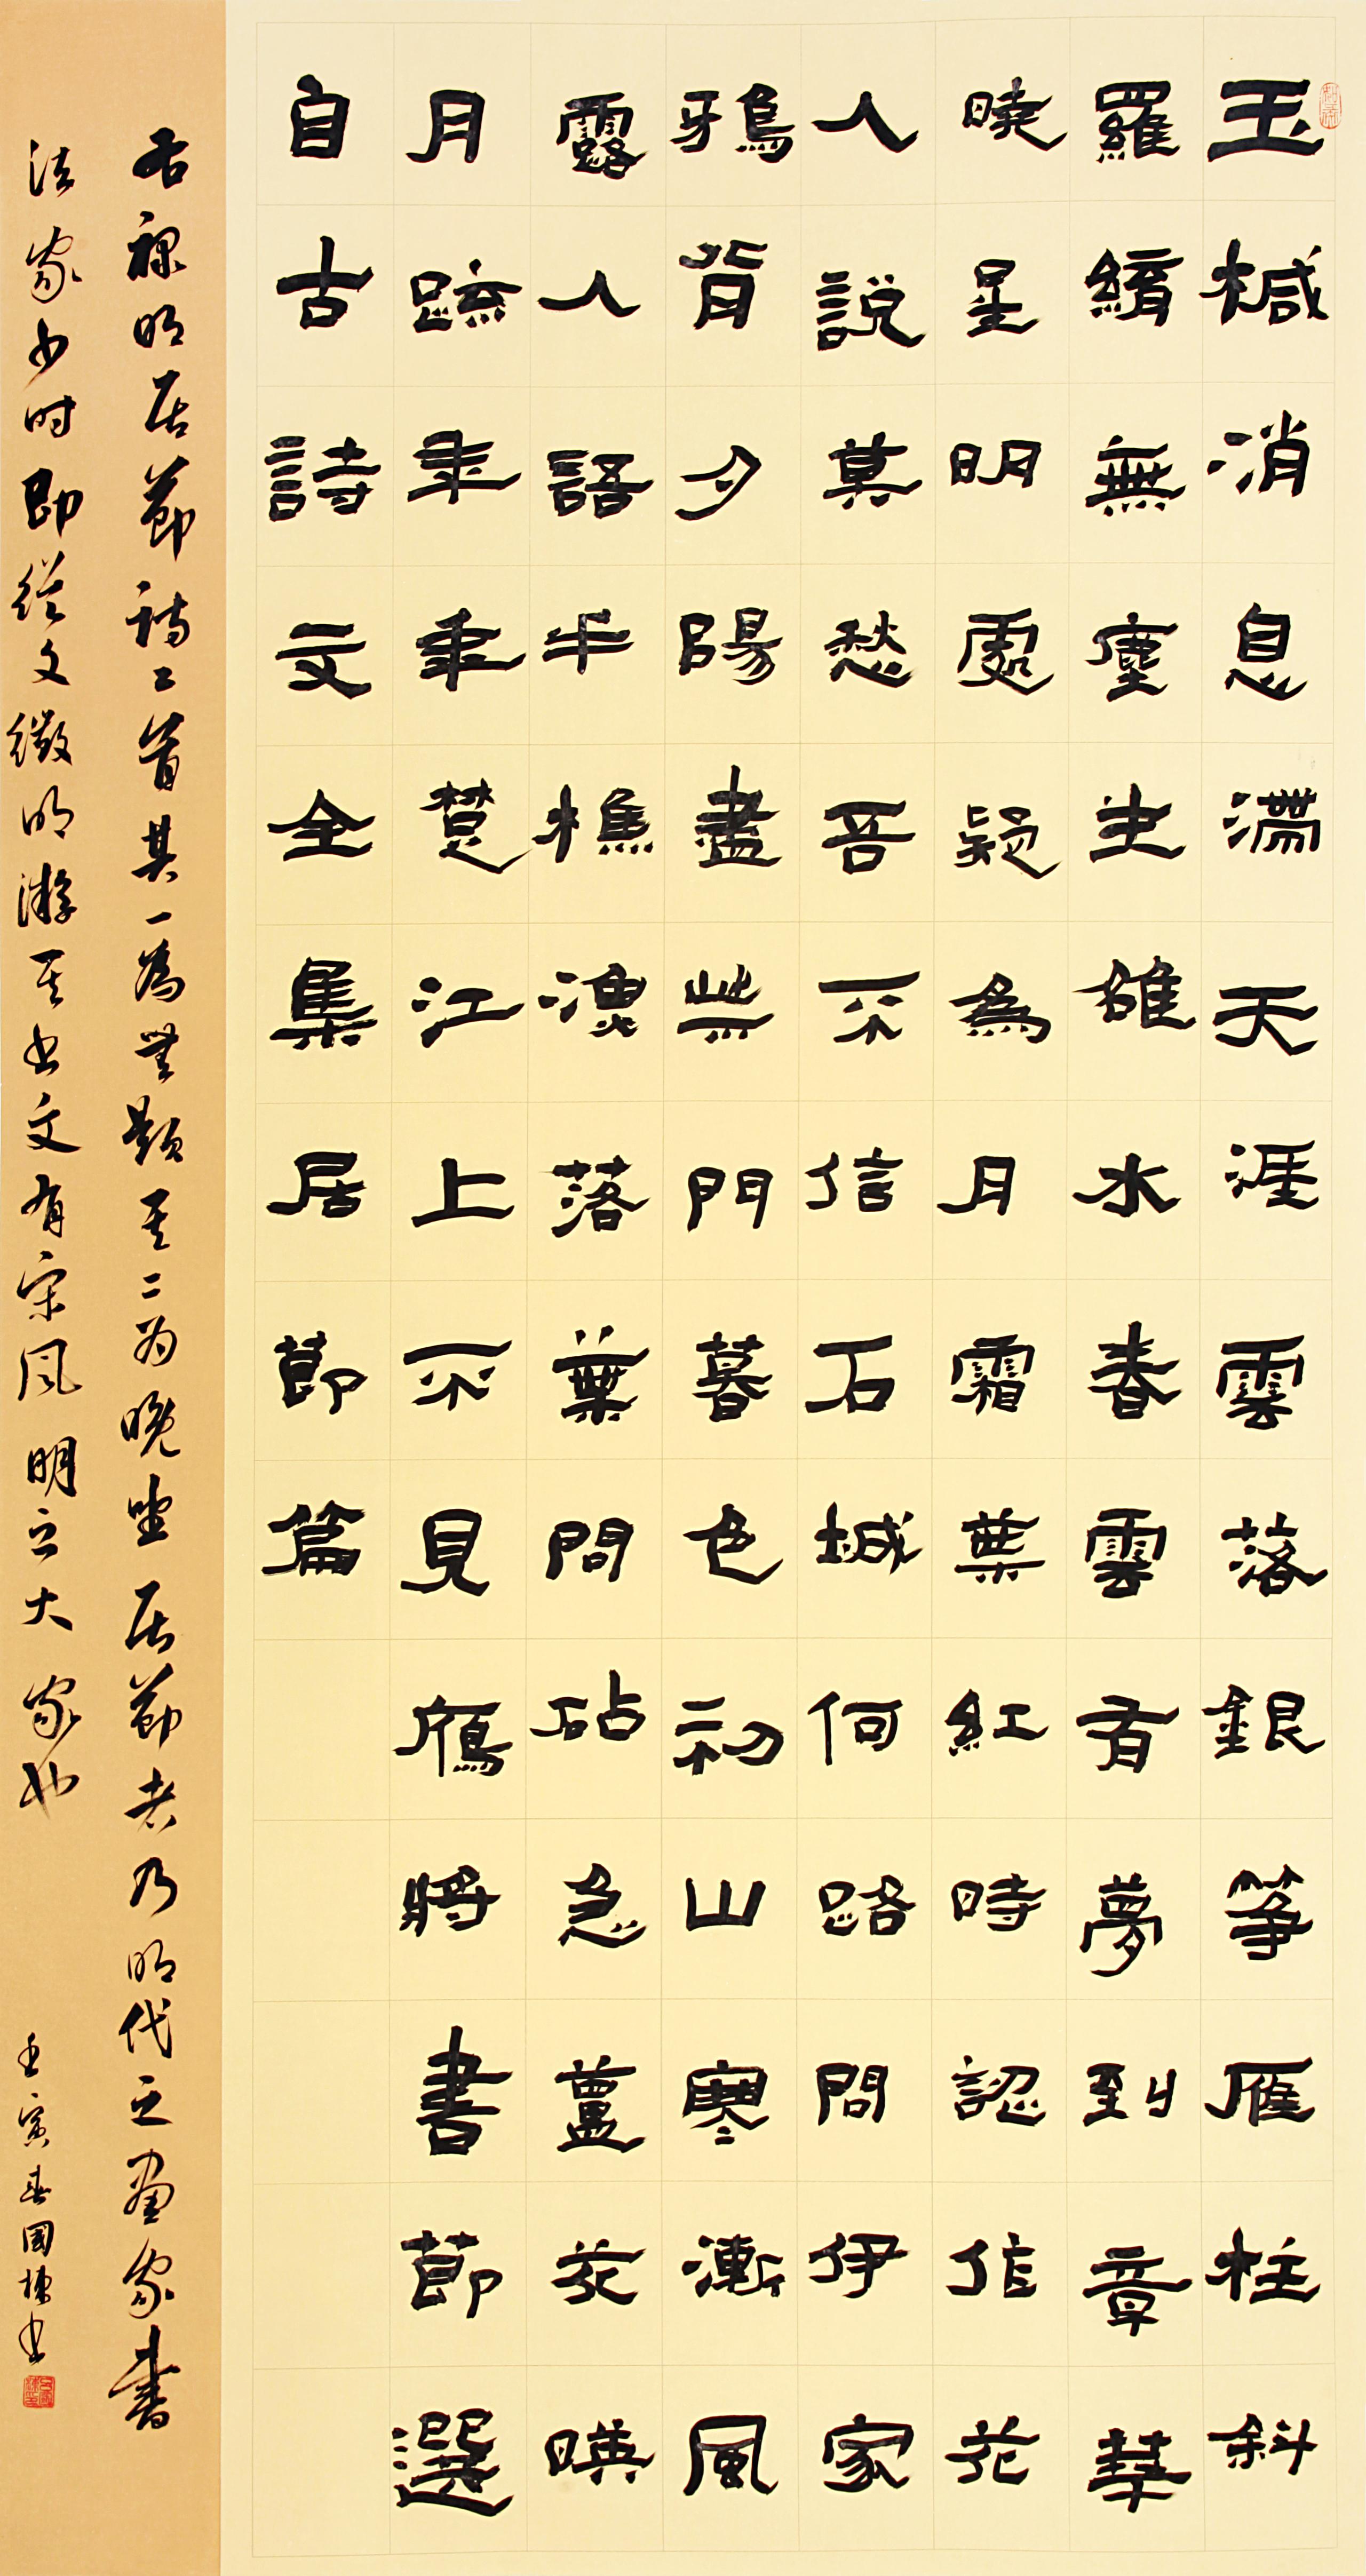 玉椷消息滯天涯雲落銀箏雁柱斜
羅縎無塵生雒水春雲有夢到章華
曉星明處疑為月霜葉紅時認作花
人說莫愁吾不信石城何路問伊家
鴉背夕陽盡柴門暮色初山寒漸風
露人語半樵漁落葉問砧急薑花映
月疏年年楚江上不見雁將書節選
自古詩文全集居節篇
右福明居節詩二首其一為無題其二为晚坐居節者乃明代之畫家書
法家少时即從文徵明游其書文有宋風明之大家也
壬寅春國棟書